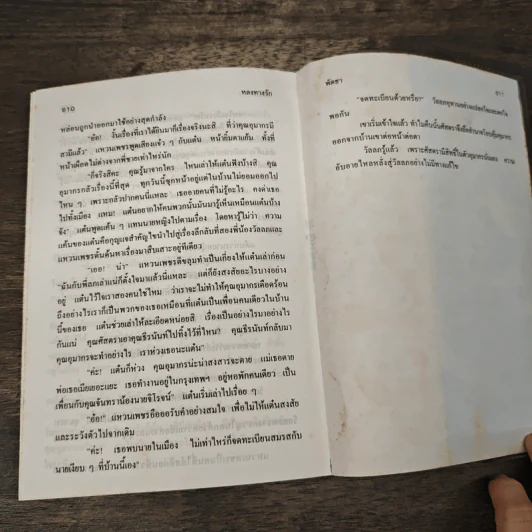 ๕๑๐
หลงทางรัก
หล่อนถูกนำออกมาใช้อย่างสุดกำลัง
"ฮ้อ! งั้นเรื่องที่เราได้ยินมาก็เรื่องจริงนะสิ ที่ว่าคุณอุมากรมี
สามีแล้ว" แหวนเพชรพูดเสียงแจ้ว ๆ กับแต้น หน้ายิ้มตามเก้น ทั้งที่
หน้าเดือดไม่ต่างจากพี่ชายเท่าไหร่นัก
"ก็จริงสิคะ คุณรู้มาจากใคร ไหนเล่าให้แต้นฟังบ้างสิ คุณ
อุมากรกลัวเรื่องนี้ที่สุด ทุกวันนี้ซุกหน้าอยู่แต่ในบ้านไม่ยอมออกไป
ไหน ๆ เพราะกลัวปากคนนี่แหละ เธออายคนที่ไม่รู้อะไร คงด่าเธอ
ไปทั้งเมือง แหม! แต้นอยากให้คนพวกนั้นมันมารู้เห็นเหมือนแต้นบ้าง
จัง" แต้นพูดแค้น ๆ แทนนายหญิงไปตามเรื่อง โดยหารู้ไม่ว่า ความ
แค้นของแต้นคือกุญแจสำคัญไขนำไปสู่เรื่องลึกลับที่สองพี่น้องวัลลภและ
แหวนเพชรดั้นด้นหาเรื่องมาสืบเสาะอยู่ทีเดียว
"เออ! น่า" แหวนเพชรตีขลุมทำเป็นเกี่ยงให้แต้นเล่าก่อน
"ฉันกับพี่ลภเล่าแน่ก็ตั้งใจมาแล้วนี่แหละ แต่ก็ยังสงสัยอะไรบางอย่าง
อยู่ แต้นไว้ใจเราสองคนใช่ไหม ว่าเราจะไม่ทำให้คุณอุมากรเดือดร้อน
ถึงอย่างไรเราก็เป็นพวกของเธอเหมือนที่แต้นเป็นเพื่อนคนเดียวในบ้าน
นี้ของเธอ แต้นช่วยเล่าให้ละเอียดหน่อยสิ เรื่องเป็นอย่างไรมาอย่างไร
กันแน่ คุณศัตราเอาคุณธีรนันท์ไปทิ้งไว้ที่ไหน? คุณธีรนันท์กลับมา
คุณอุมากรจะทำอย่างไร เราห่วงเธอนะแต้น"
"ค่ะ! แต้นก็ห่วง คุณอุมากรน่ะน่าสงสารจะตาย แม่เธอตาย
พ่อเธอเมียเยอะแยะ เธอทำงานอยู่ในกรุงเทพฯ อยู่หอพักคนเดียว เป็น
เพื่อนกับคุณจันทราน้องนายจิโรจน์" แต้นเริ่มเล่าไปเรื่อย ๆ
"ฮ้อ!" แหวนเพชรฮือออรับคำอย่างสนใจ เพื่อไม่ให้แต้นสงสัย
และระวังตัวไปจากเดิม
"ค่ะ! เธอพบนายในเมือง ไม่เท่าไหร่ก็จดทะเบียนสมรสกับ
นายเงียบ ๆ ที่บ้านนี้เอง"
พัดชา
๕๑๑
"จดทะเบียนด้วยหรือ?" วัลลภอุทานอย่างแปลกใจและตกใจ
พอกัน
เขาเริ่มเข้าใจแล้ว ทำไมคืนนั้นศัตราจึงถือสิทธิ์ขาดไปอุ้มอุมากร
ออกจากบ้านเขาต่อหน้าต่อตา
วัลลภรู้แล้ว เพราะศัตรามีสิทธิ์ในตัวอุมากรนั่นเอง ความ
อับอายไหลหลั่งสู่วัลลภอย่างไม่มีทางแก้ไข